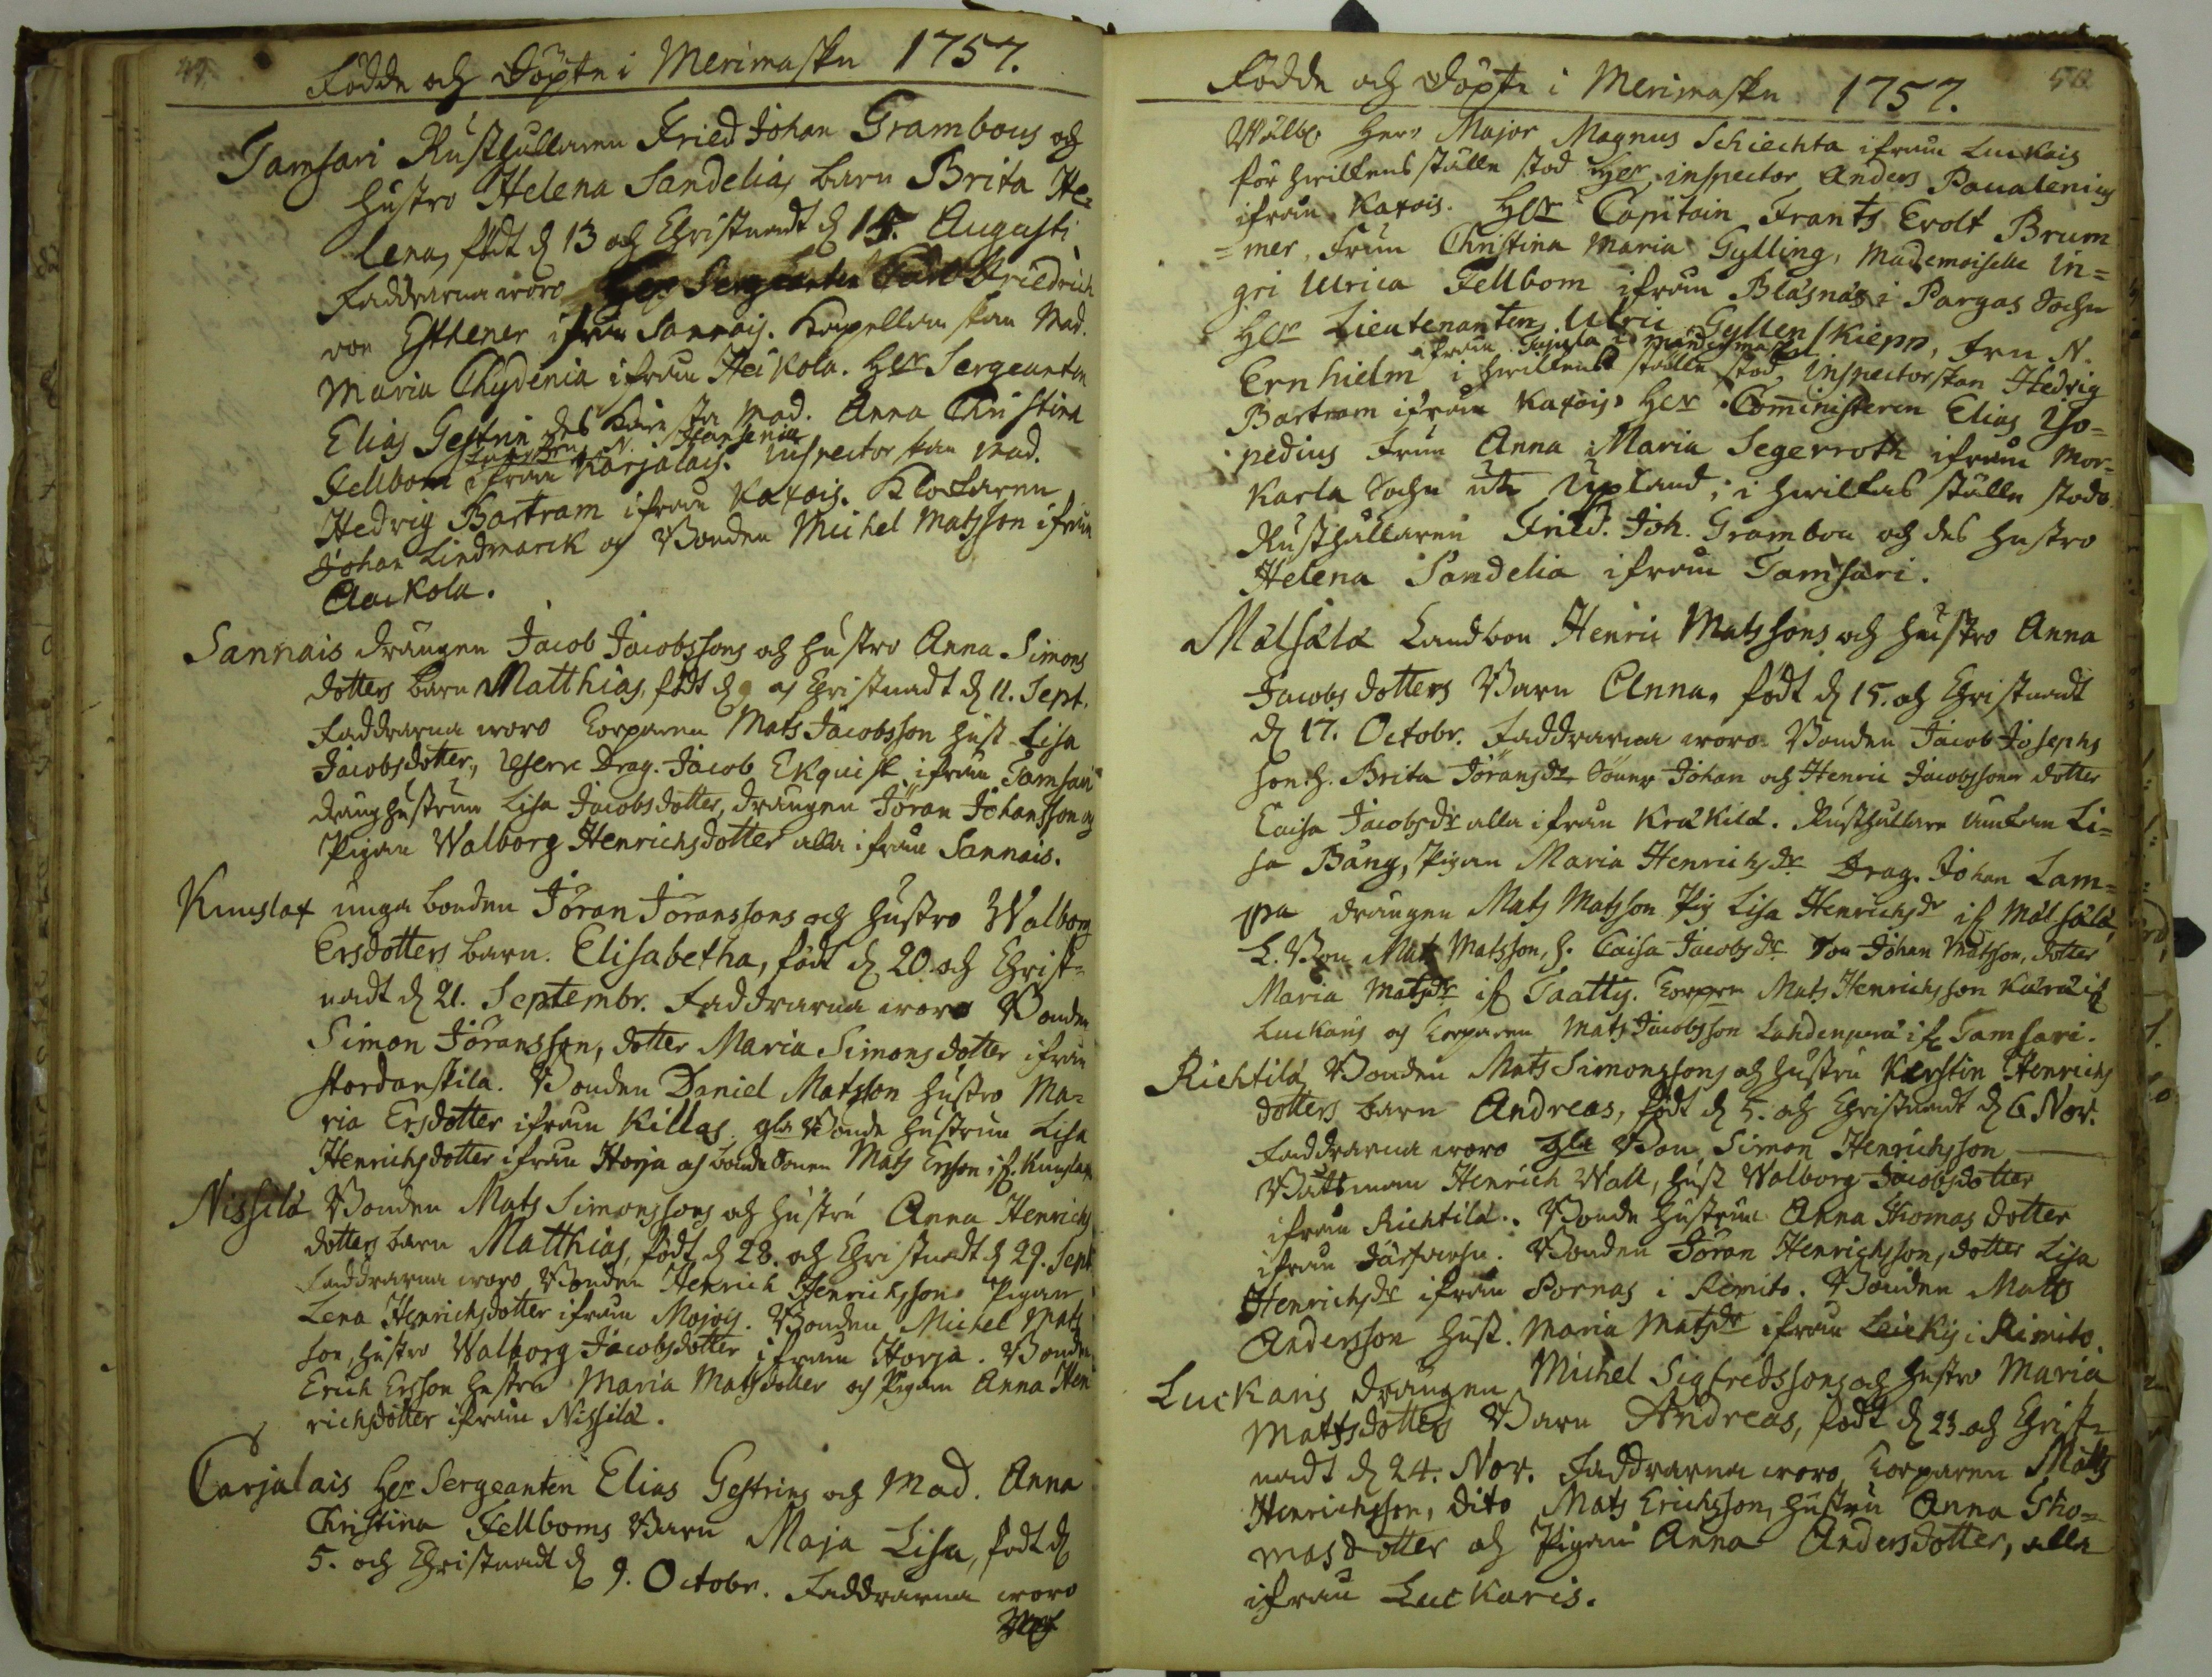 49.
Födde och Döpte i Merimasku 1757.
Tamsari Rusthållaren Fried Johan Grambous och
hustro Helena Sandelias barn Brita He=
lena, födt d 13 och Christnadt d 15. Augusti
Faddrarna woro Her Sergeanten Carl Friedrich
von Essthener ifrån Sannais. Kapellanskan Mad.
Maria Chydenia ifrån Heikola. Her Sergeanten
Elias Gestrin des Kära sta Mad. Anna Christina
Fellbom ifrån Karjalais. Inspectorskan Mad.
Hedvig Bartram ifrån Kaxois. Klockaren
Johan Lindmarck och Bonden Michel Matsson ifrån
Aackola.
Sannais drängen Jacob Jacobssons och hustro Anna Simons
dotters barn Matthias, födt d 9 och Christnadt d 11. Sept.
Faddrarna woro Torparen Mats Jacobsson hust Lisa
Jacobsdotter, Reserve Drag. Jacob Ekquist ifrån Tamsari
dräng hustrun Lisa Jacobsdotter, drängen Jöran Johansson och
Pigan Walborg Henrichsdotter alla ifrån Sannais.
Kuuslax unga bonden Jöran Jöranssons och hustro Walborg
Ersdotters barn. Elisabetha, födt d 20. och Christ=
nadt d 21. Septembr. Faddrarna woro Bonden
Simon Jöransson, dotter Maria Simonsdotter ifrån
stordanskila. Bonden Daniel Matsson hustro Ma=
ria Ersdotter ifrån Killas gla Bonde hustrun Lisa
Henrichsdotter ifrån Horja och bonde Sonen Mats Ersson if. Kuuslax
Nissilä Bonden Mats Simonssons och hustru Anna Henrichs
dotters barn Matthias, födt d 28. och Christnadt d 29. Sept
Faddrarna woro Bonden Henrich Henrichsson Pigan
Lena Henrichsdotter ifrån Mojois. Bonden Michel Mats
son, hustro Walborg Jacobsdotter ifrån Horja. Bonden
Erich Ersson hustru Maria Matsdotter och Pigan Anna Hen
richsdotter ifrån Nissilä.
Carjalais Her Sergeanten Elias Gestrins och Mad. Anna
Christina Fellboms Barn Maja Lisa, födt d
5. och Christnadt d 9. Octobr. Faddrarna woro
50
Födde och Döpte i Merimasku 1757.
Wälb. Herr Major Magnus Schiechta ifrån Luckais
för hwilkens ställe stod Her inspector Anders Pacalenius
ifrån Kaxois. Her Capitain Frants Evolt Brum
=mer, Frun Christina Maria Gylling, Mademoiselle In=
gri Ulrica Fellbom ifrån Bläsnäs i Pargas Sochn
Her Lieutenanten Ulric Gyllenskiepp, Fru N.
ifrån Taipala i Mandismasku
Ernhielm i hwilkens ställe stod Inspectorskan Hedvig
Bartram ifrån Kaxois. Her Comministeren Elias Iso=
pedius Frun Anna Maria Segerroth ifrån Mor=
karla Sochn uti Upland; i hwilkas ställe stodo
Rusthållaren Fried. Joh. Grambou och des hustro
Helena Sandelia ifrån Tamsari.
Målsälä Landbon Henric Matssons och hustro Anna
Jacobsdotters Barn Anna, födt d 15. och Christnadt
d 17. Octobr. Faddrarna woro Bonden Jacob Josephs
son h. Brita Jöransdr Söner Johan och Henric Jacobssöner dotter
Caisa Jacobsdr alla ifrån Kråkilä. Rusthållare Enkan Li=
sa Bång, Pigan Maria Henrichsdr Drag. Johan Lam=
pa drängen Mats Matsson Pig Lisa Henrichsdr if Målsälä,
L. Bon Mats Matsson, h. Caisa Jacobsdr Son Johan Matsson, dotter
Maria Matsdr if Taattis. Torparen Mats Henrichsson Karä if
Luckaris och Torparen Mats Jacobsson Lahdenperä if Tamsari.
Riehtilä Bonden Mats Simonssons och hustru Kerstin Henrichs
dotters barn Andreas, födt d 5. och Christnadt d 6 Nov.
Faddrarna woro gla Bon Simon Henrichsson
Båtsman Henrich Wall, hust Walborg Jacobsdotter
ifrån Riehtilä. Bonde hustrun Anna Thomasdotter
ifrån Järfwisu. Bonden Jöran Henrichsson, dotter Lisa
Henrichsdr ifrån Pornas i Remito. Bonden Matts
Andersson hust. Maria Matsdr ifrån Leickis i Rimito.
Luckaris drängen Michel Sigfredssons och hustro Maria
Mattsdotters Barn Andreas, födt d 23 och Christ=
nadt d 24. Nov. Faddrarna woro Torparen Matts
Henrichsson, dito Mats Erichsson, hustru Anna Tho=
masdotter och Pigan Anna Andersdotter, alla
ifrån Luckaris.